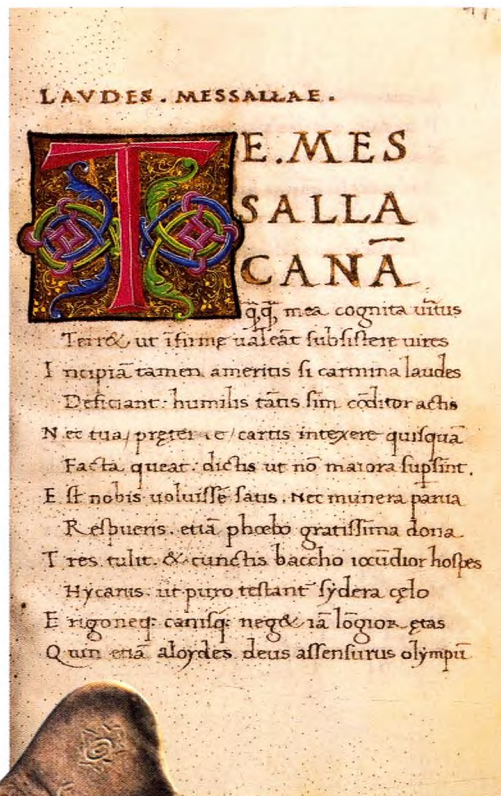 LAVDES . MESSALLAE .
TE . MES
SALLA
CANĀ
q̄.q̄, mea cognita uirtus
Terret, ut ifirme ualeāt subsistere uires
Incipiā tamen ameritis si carmina laudes
Deficiant: humilis tātis sim cōditor actis
Nec tua/ preter te/ cartis intexere quisquā
Facta queat: dictis ut nō maiora supsint.
Est nobis uoluisse satis. Nec munera parua
Respueris. etiā phœbo gratissima dona
Tres tulit. & cunctis baccho iocūdior hospes
Hycarus. ut puro testant sydera cęlo
Erigoneq: canisq: neg& iā lōgior ętas
Quin etiā aloydes deus assensurus olympū